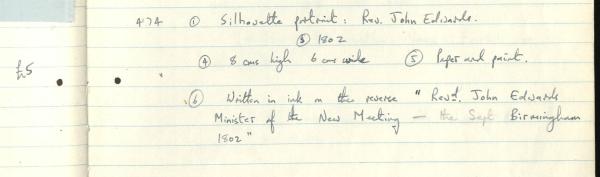 474 ① Silhouette portrait: Rev. John Edwards.
③ 1802
④ 8 cms high 6 cms wide ⑤ Paper and paint.
£5
⑥ Written in ink on the reverse "Revd. John Edwards
Minister of the New Meeting – the Sept Birmingham
1802"